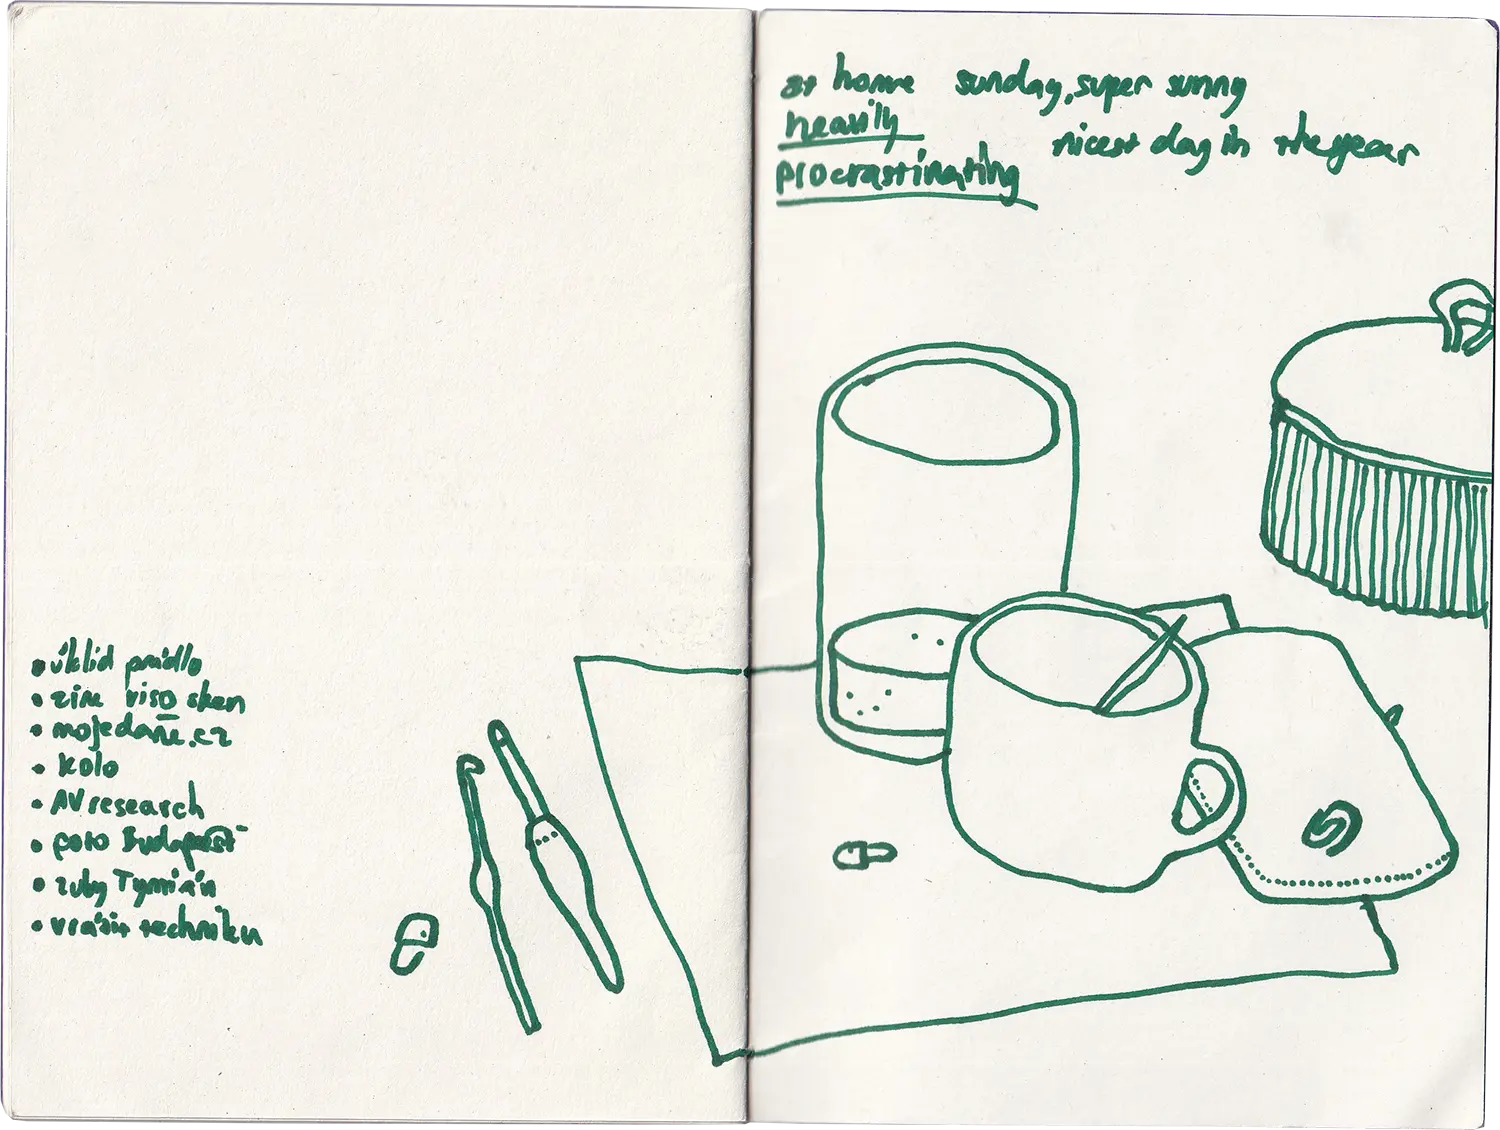 úklid prádlo
zine riso sken
mojedaně.cz
kolo
AV research
foto Budapešť
zuby Tymián
vrátit techniku
at home
heavily
procrastinating
sunday, super sunny
nicest day in the year